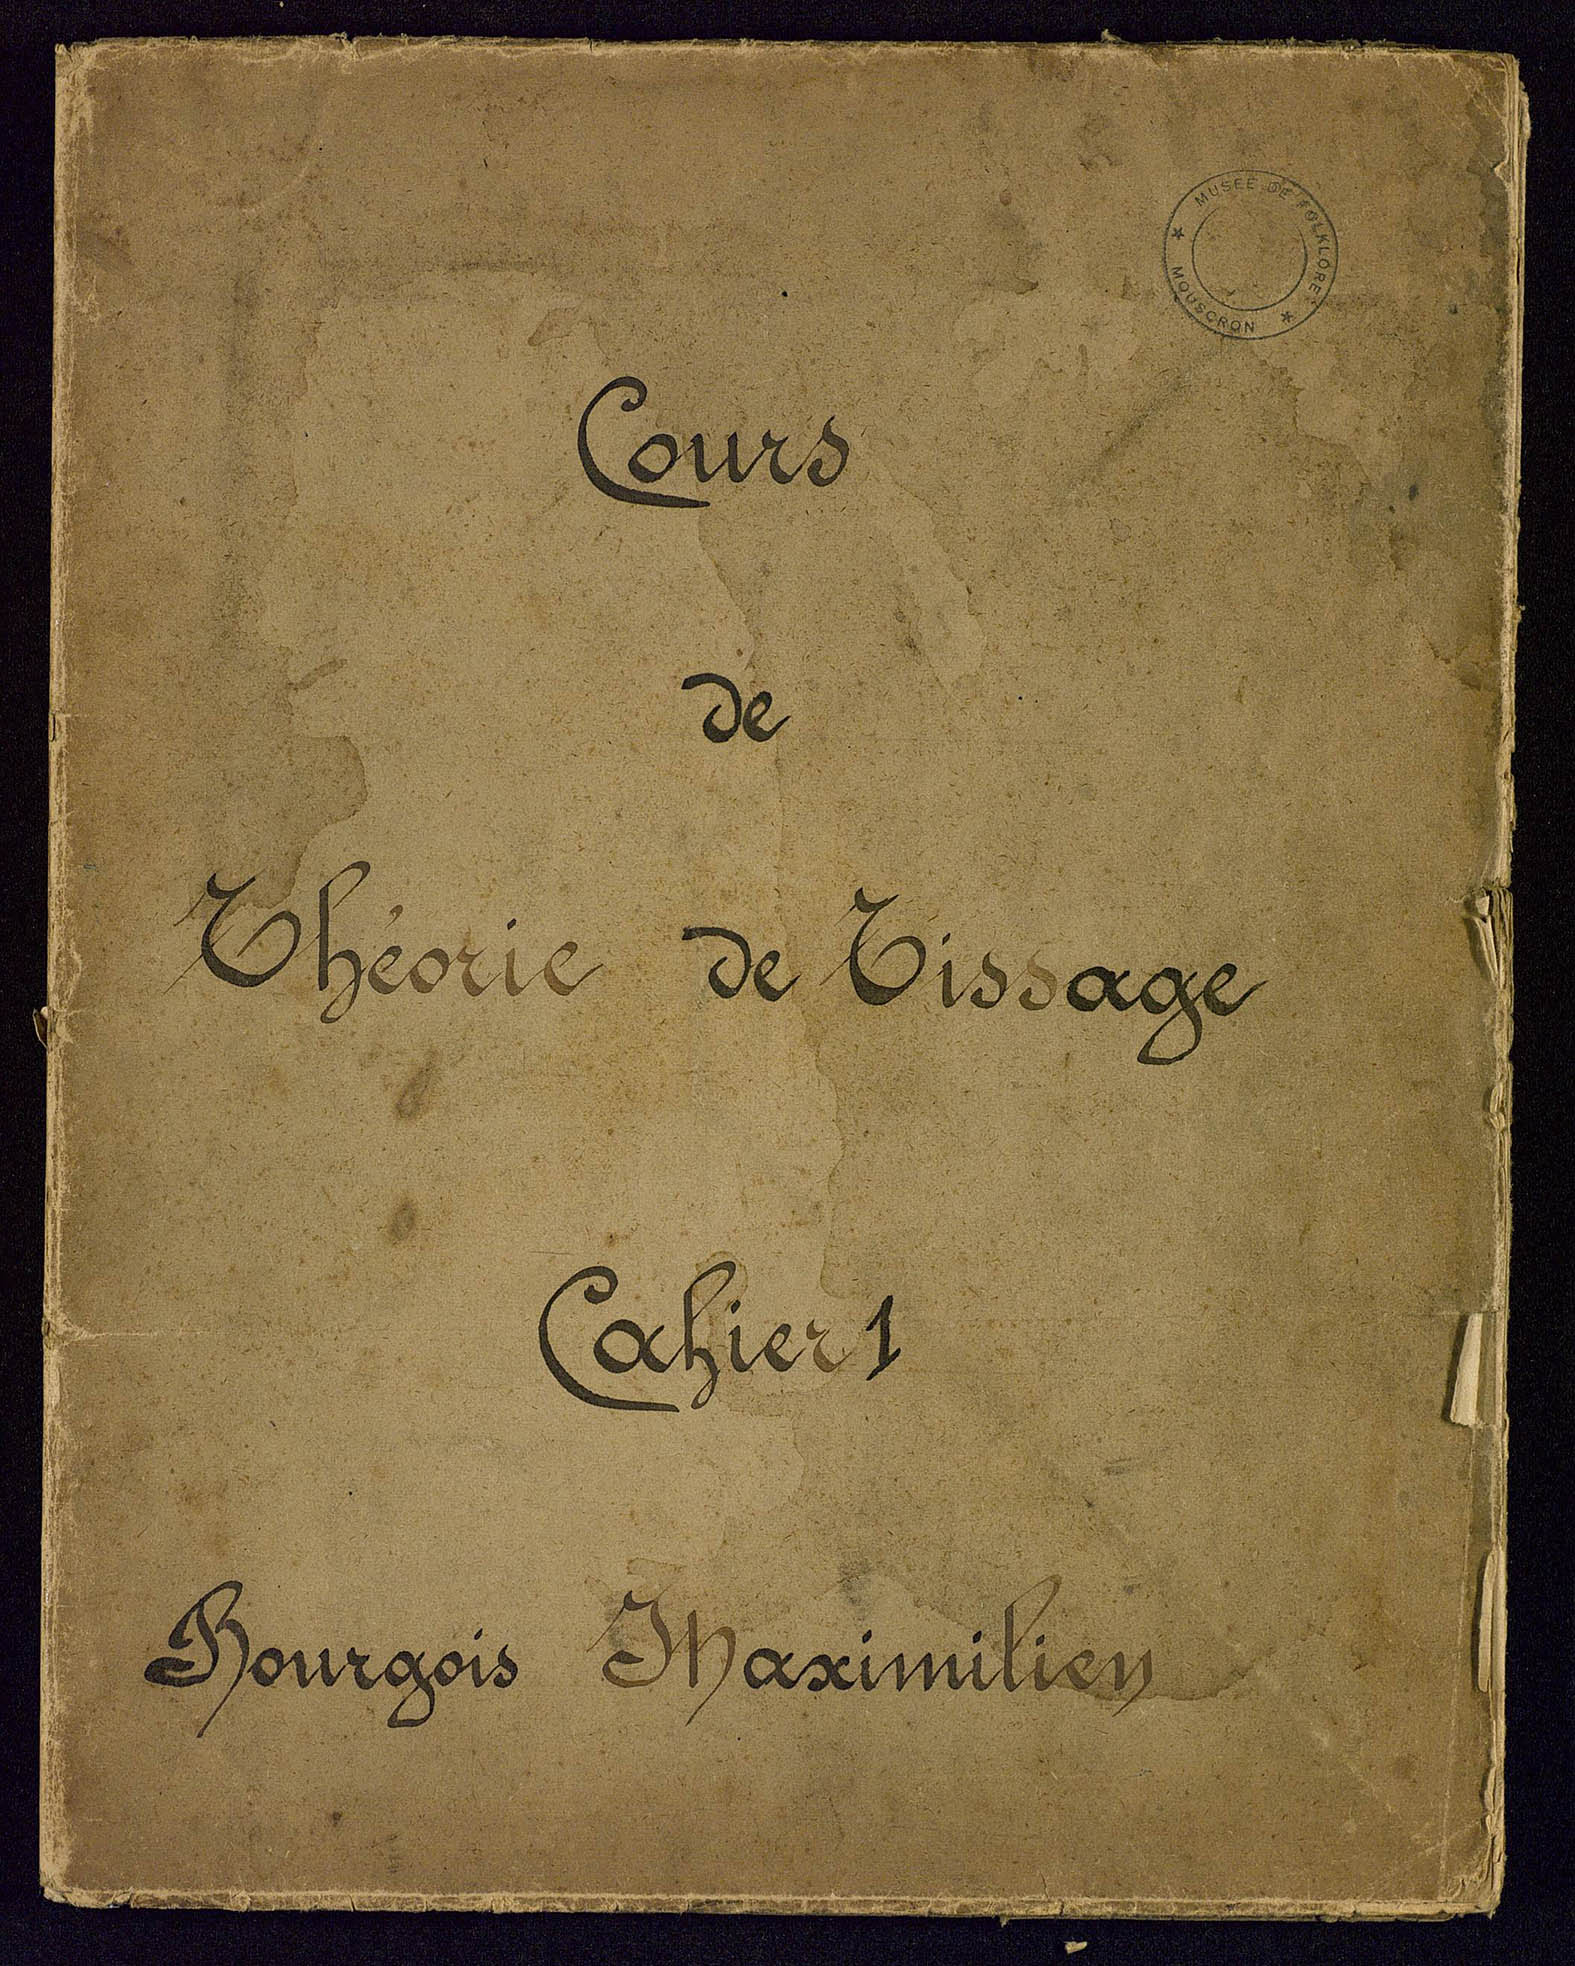 MUSEE DE FOLKLORE
MOUSCRON
Cours
de
Théorie de Tissage
Cahier 1
Bourgois Maximilien